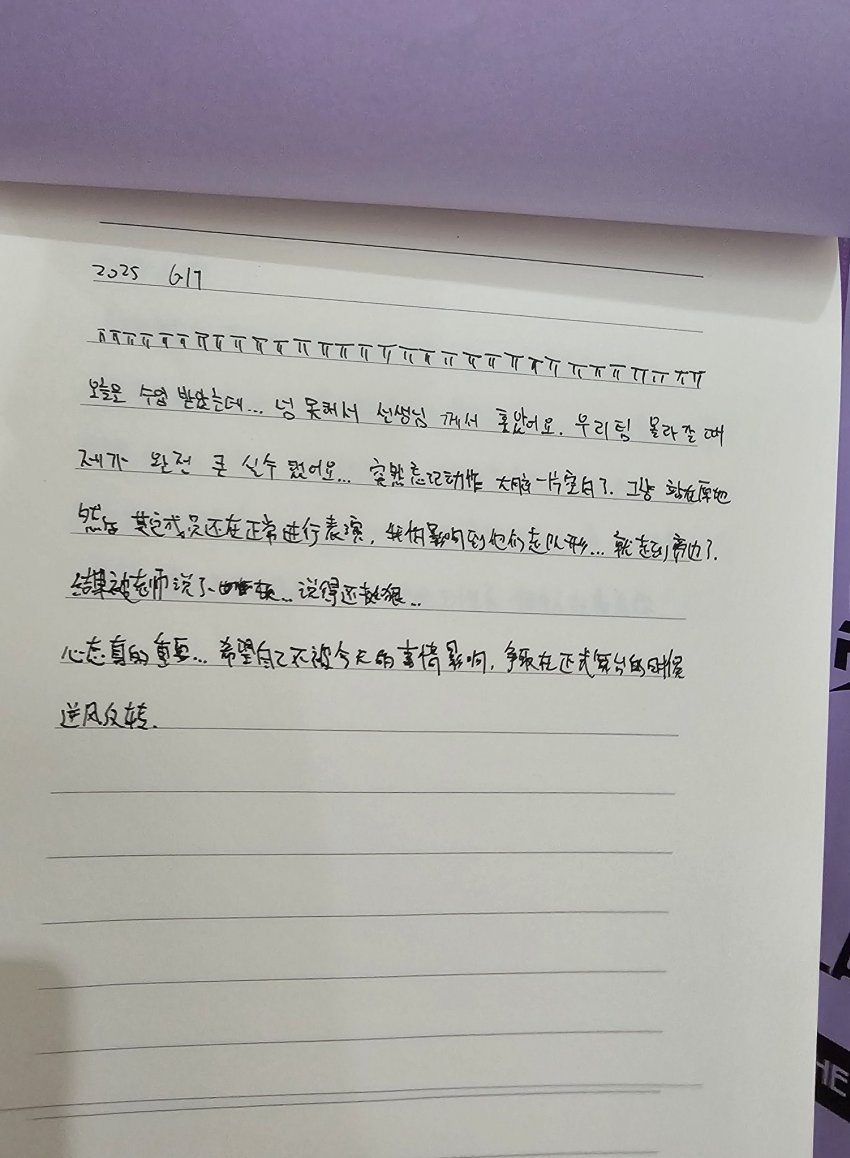 2025 617
ㅠㅠㅠㅠㅠㅠㅠㅠㅠㅠㅠㅠㅠㅠㅠㅠㅠㅠㅠㅠㅠㅠㅠㅠㅠㅠㅠㅠㅠㅠㅠㅠ
오늘은 수업 받았는데... 넝 못해서 선생님 께서 혼났어요. 우리팀 올라갈 때
제가 완전 큰 실수 했어요... 突然忘记动作 大脑一片空白了. 그냥 站在原地
然后 其它成员还在正常进行表演, 我怕影响到他们走队形... 就走到旁边了.
结果被老师说了一顿... 说得还挺狠...
心态真的重要... 希望自己不被今天的事情影响, 争取在正式舞台的时候
逆风反转.